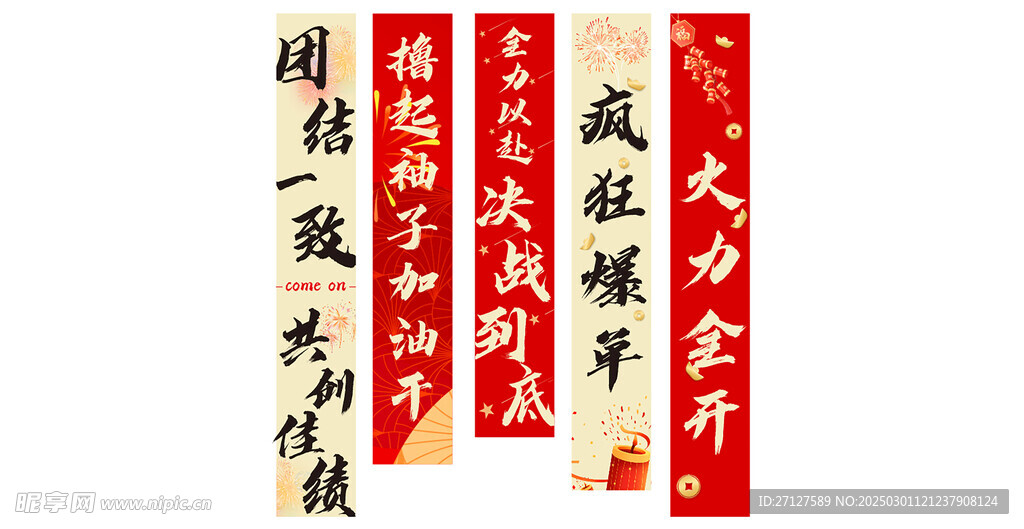 团结一致
come on
共创佳绩
撸起袖子加油干
全力以赴
决战到底
疯狂爆单
福
火力全开
昵享网 www.nipic.cn
ID:27127589 NO:20250301121237908124